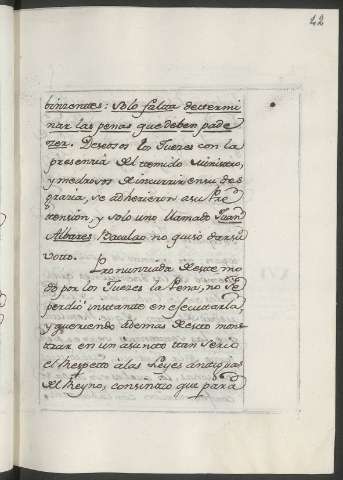 22
binientes: Solo falta determi
nar las penas que deben pade
zer. Deseosos los Jueces con la
presencia del temido Ministro,
y medrosos de incurrir en su des
gracia, se adhirieron a su Pre
tension, y solo uno llamado Juan
Albares Baculao no quiso dar su
voto.
Pronunciada de este mo
do por los Jueces la Pena, no se
perdió instante en efecutarla,
y queriendo ademas de esto mos
trar en un asunto tan serio
el Respeto à las Leyes antiguas
del Reyno, consintio que para